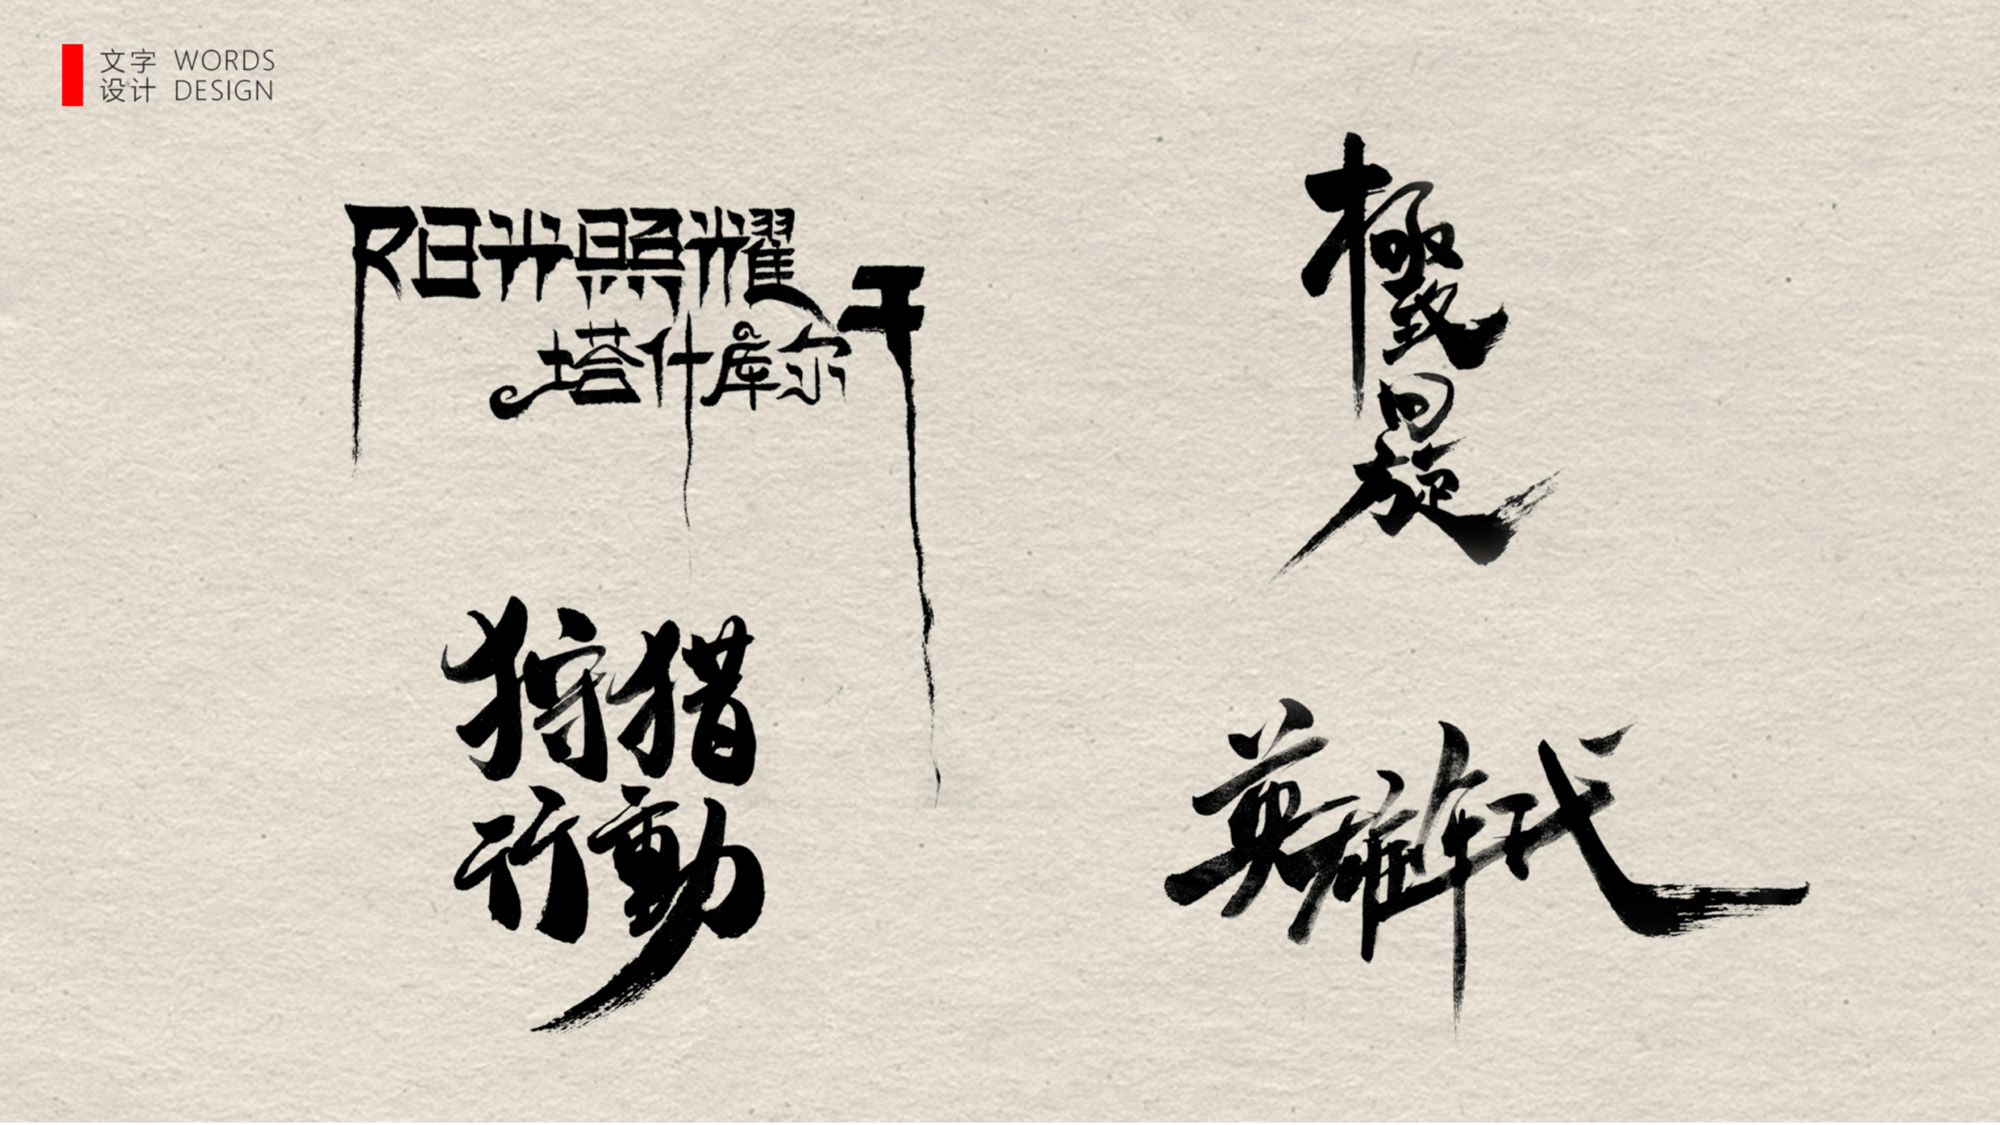 文字 WORDS
设计 DESIGN
阳光照耀
塔什库尔干
極致
回旋
狩猎
行動
英雄年代